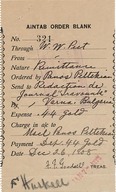 AINTAB ORDER BLANK
No. 324
Through W. W. Peet
From
Nature Remittance
Ordered by Panos Pettekian
Send to Redaction del
Journal "Iravounk"
Varna, Bulgaria
Expense 44 gold
Chg. to
Acct Panos Pettekian
Sept. 44 Gold
Date Dec 26, 105
TREAS.
F Haskell